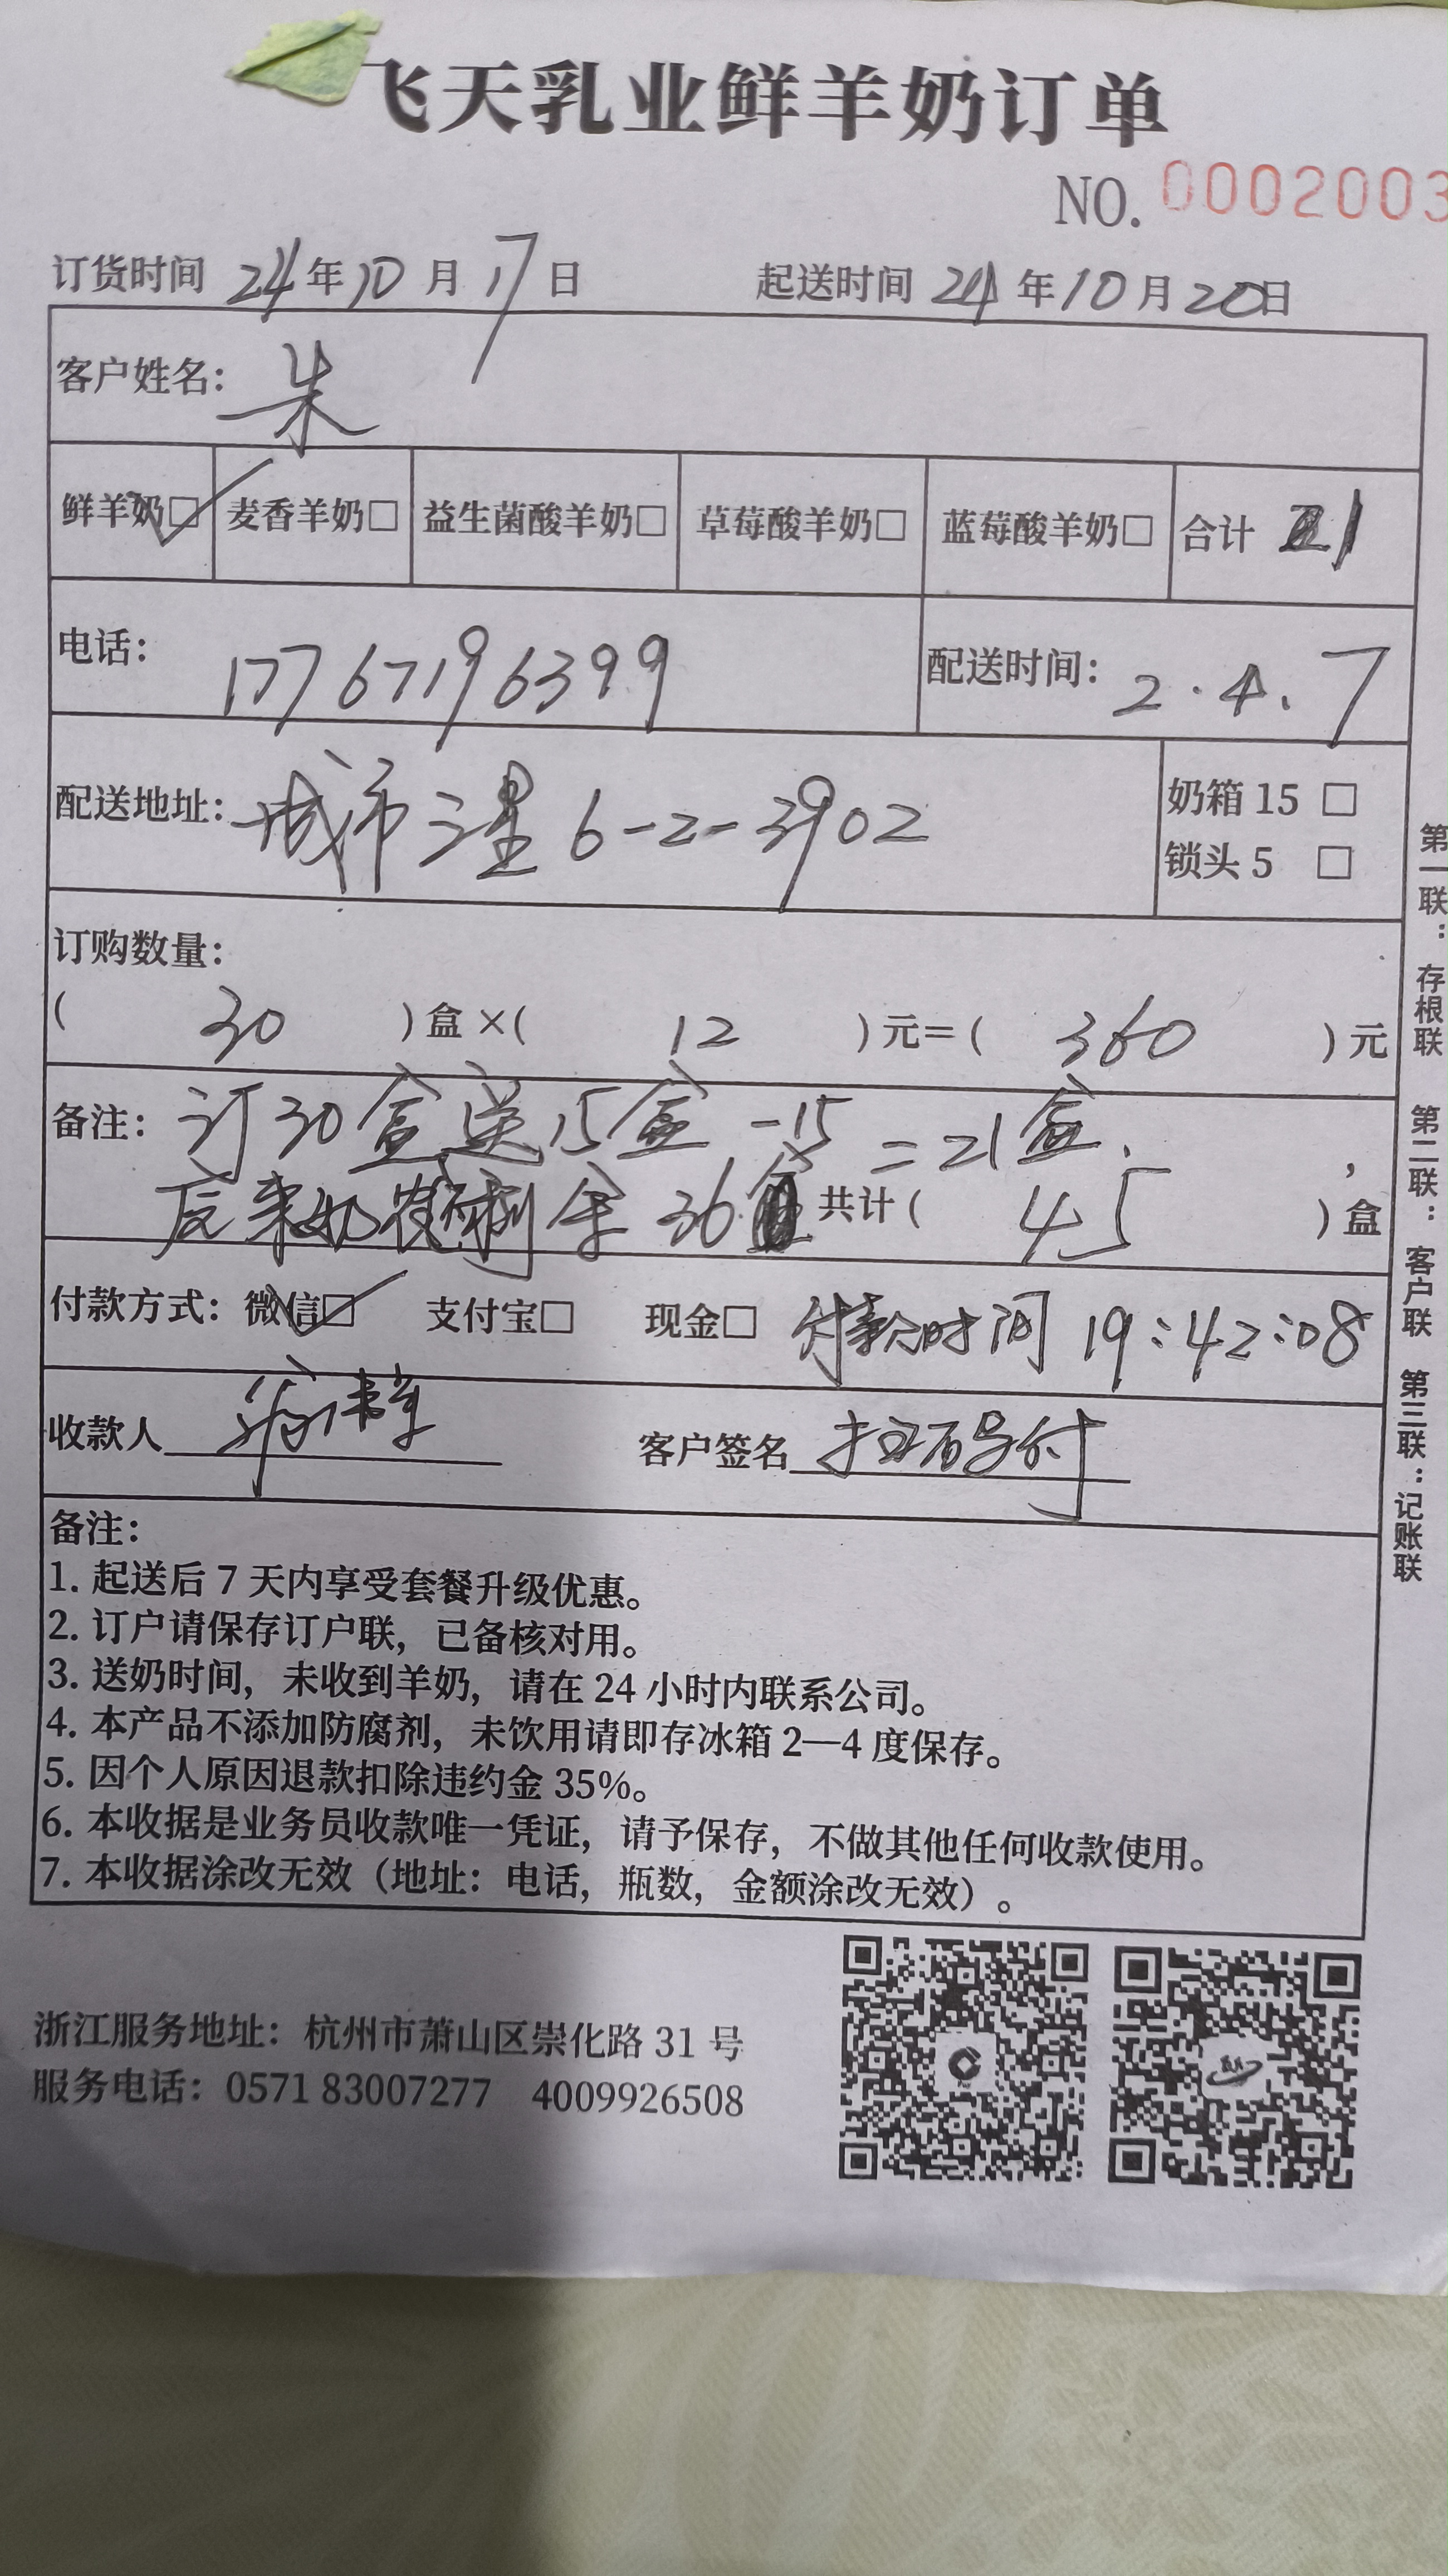 飞天乳业鲜羊奶订单
NO. 0002003
订货时间 24年10月17日 起送时间 24年10月20日
客户姓名: 朱
鲜羊奶□ 麦香羊奶□ 益生菌酸羊奶□ 草莓酸羊奶□ 蓝莓酸羊奶□ 合计 21
电话: 17767196399 配送时间: 2.4.7
配送地址: 城市之星 6-2-3902 奶箱 15 □
锁头 5 □
订购数量:
( 30 ) 盒 ×( 12 ) 元=( 360 ) 元
备注: 订30盒送15盒 -15 = 21盒.
36 共计( 45 ) 盒
付款方式: 微信□ 支付宝□ 现金□ 付款时间 19:42:08
收款人 客户签名 扫码付
备注:
1. 起送后 7 天内享受套餐升级优惠。
2. 订户请保存订户联, 已备核对用。
3. 送奶时间, 未收到羊奶, 请在 24 小时内联系公司。
4. 本产品不添加防腐剂, 未饮用请即存冰箱 2—4 度保存。
5. 因个人原因退款扣除违约金 35%。
6. 本收据是业务员收款唯一凭证, 请予保存, 不做其他任何收款使用。
7. 本收据涂改无效 (地址: 电话, 瓶数, 金额涂改无效) 。
第一联: 存根联 第二联: 客户联 第三联: 记账联
浙江服务地址: 杭州市萧山区崇化路 31 号
服务电话: 0571 83007277 4009926508